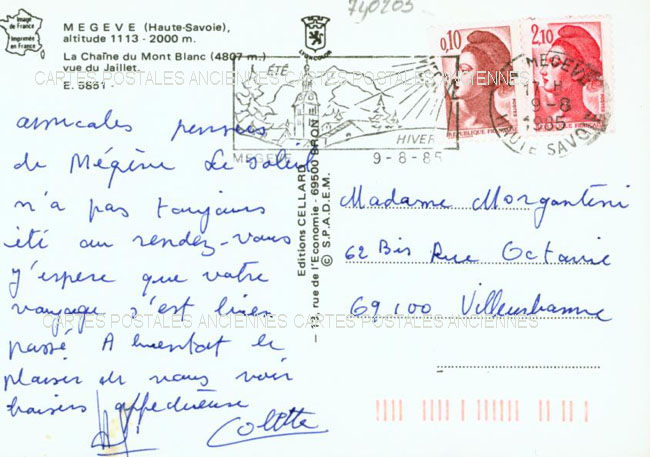 Image
de France
Imprimée
en France
MEGEVE (Haute-Savoie),
altitude 1113 - 2000 m.
La Chaîne du Mont Blanc (4807 m.)
vue du Jaillet.
E. 5861
LYONCOLOR
740203
ÉTÉ
HIVER
MEGEVE
9-8-85
0,10
REPUBLIQUE FRANÇAISE
POSTES
2,10
MEGEVE
17 H
9-8
1985
HAUTE SAVOIE
CARTES POSTALES ANCIENNES CARTES POSTALES ANCIENNES
amicales pensées
de Mégève Le soleil
n'a pas toujours
été au rendez-vous
J'espère que votre
voyage s'est bien
passé A bientôt le
plaisir de vous voir
baisers affectueuse
Colette
Editions CELLARD
13, rue de l'Economie - 69500 BRON
© S.P.A.D.E.M.
Madame Morgantini
62 Bis Rue Octavie
69100 Villeurbanne
CARTES POSTALES ANCIENNES CARTES POSTALES ANCIENNES